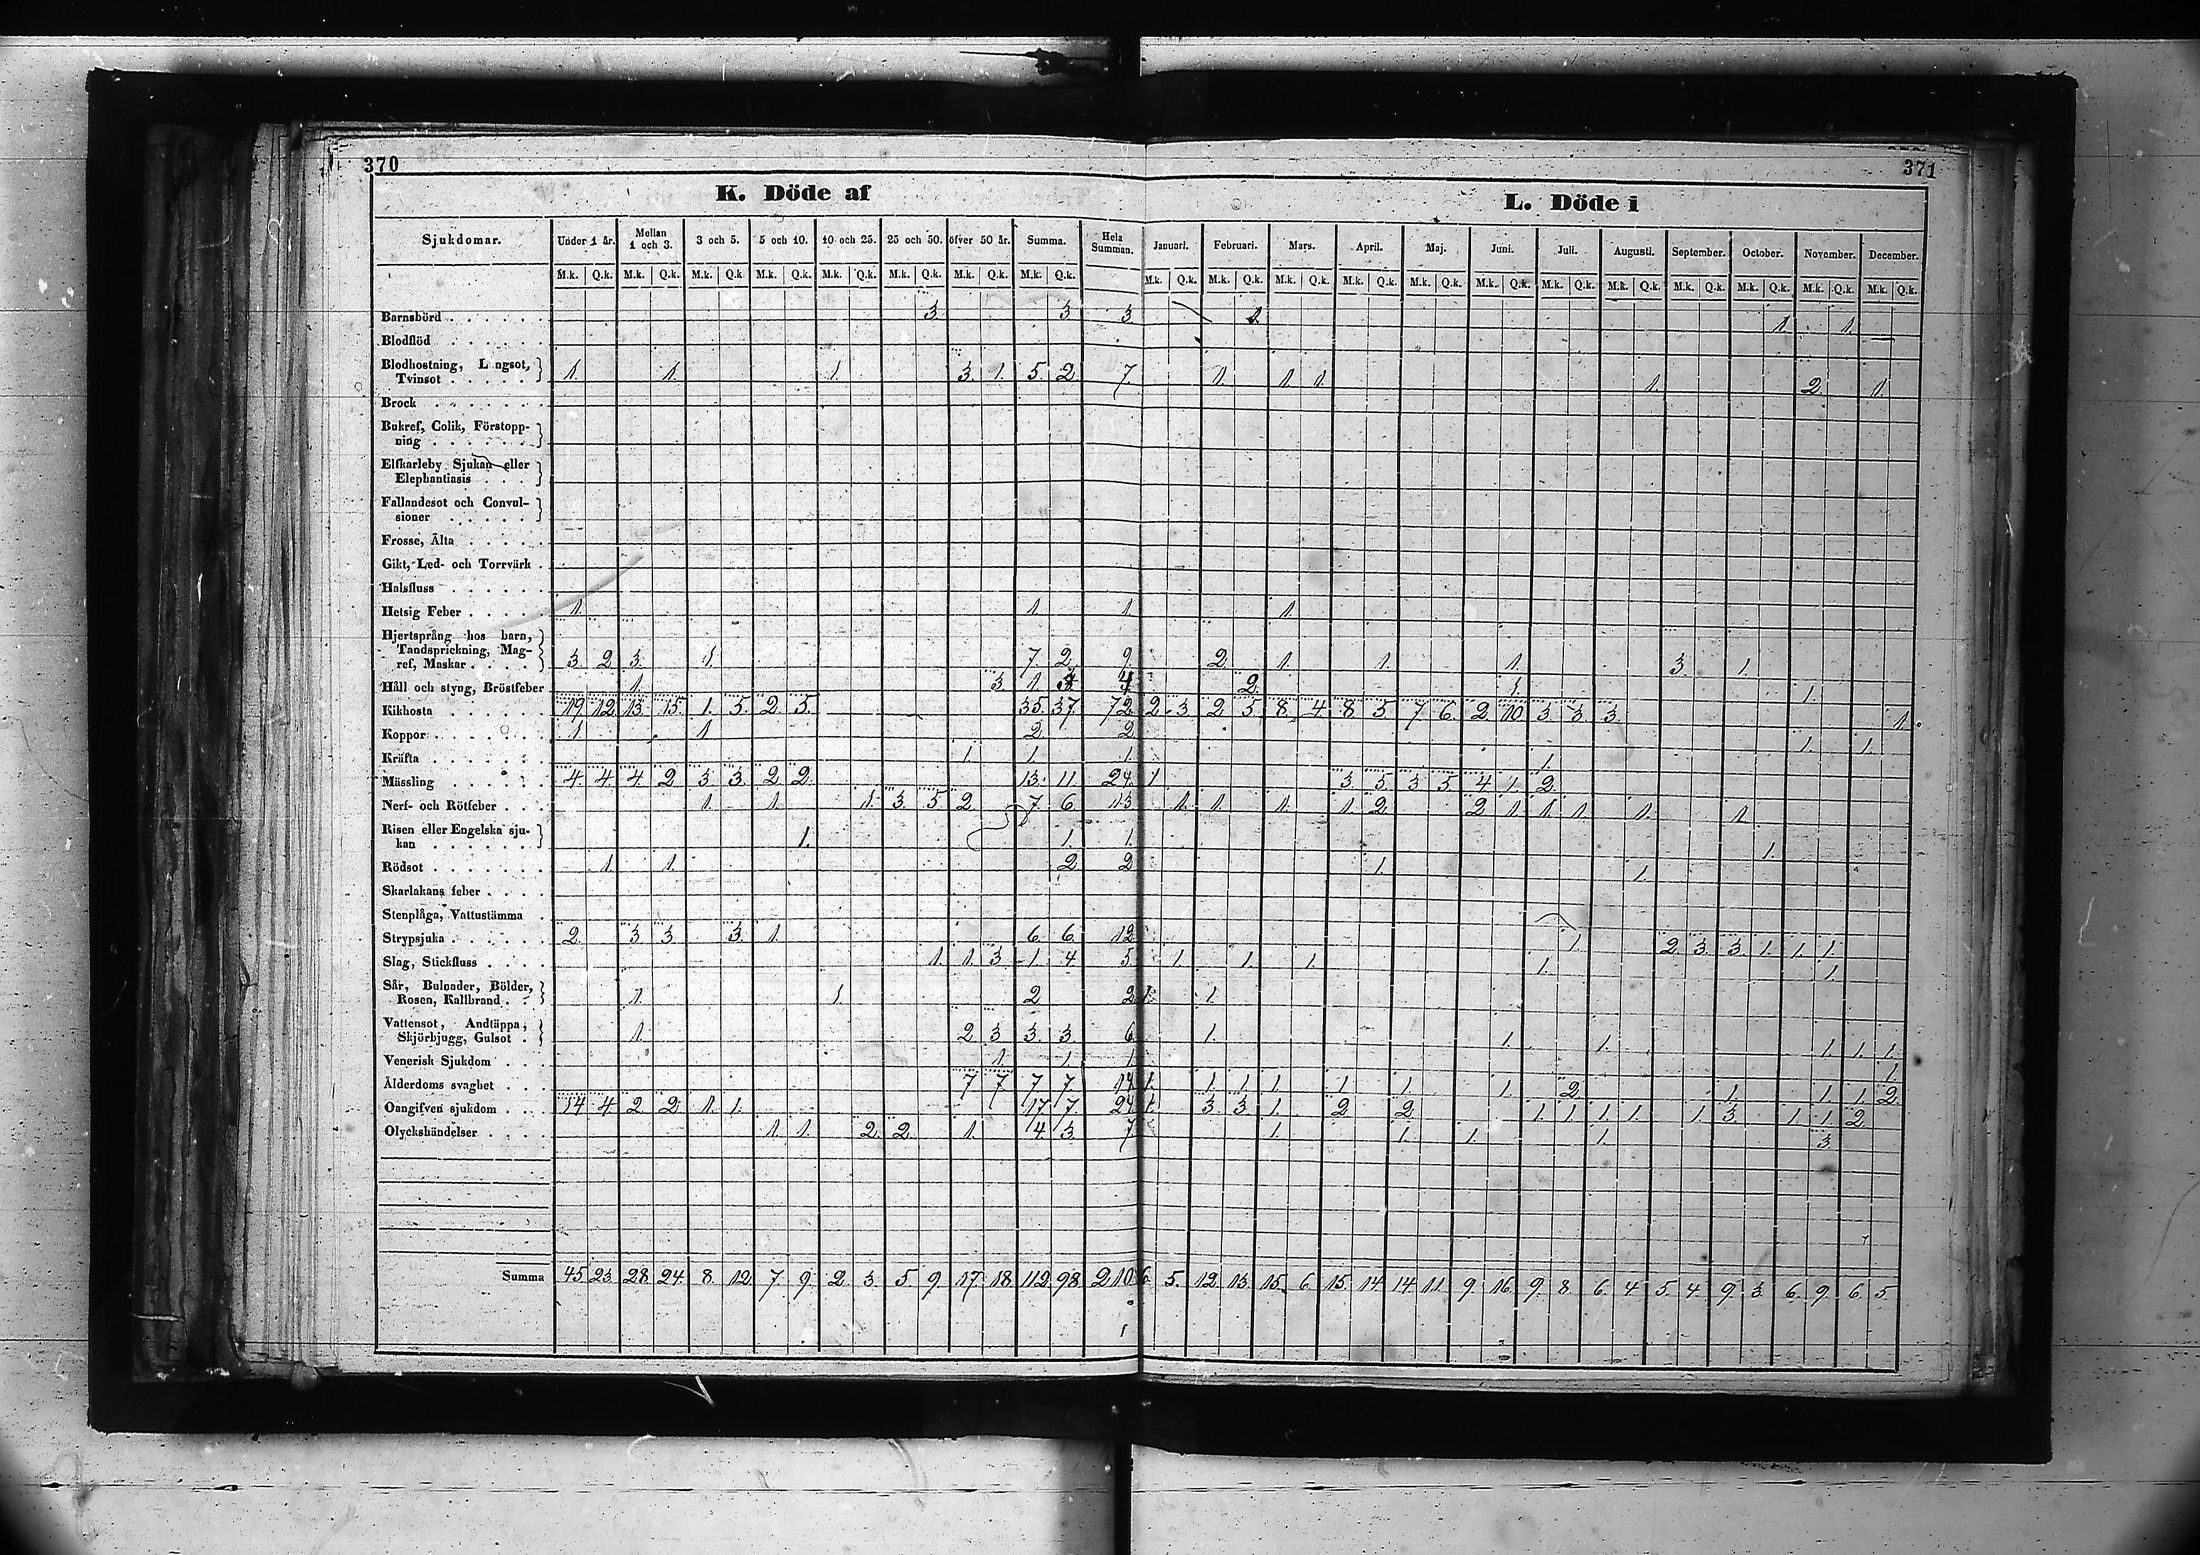 370
371
K. Döde af
L. Döde i
Sjukdomar. Under 1 år. Mellan 1 och 3. 3 och 5. 5 och 10. 10 och 25. 25 och 50. öfver 50 år. Summa. Hela Summan. Januari. Februari. Mars. April. Maj. Juni. Juli. Augusti. September. October. November. December.
M.k. Q.k. M.k. Q.k. M.k. Q.k. M.k. Q.k. M.k. Q.k. M.k. Q.k. M.k. Q.k. M.k. Q.k. M.k. Q.k. M.k. Q.k. M.k. Q.k. M.k. Q.k. M.k. Q.k. M.k. Q.k. M.k. Q.k. M.k. Q.k. M.k. Q.k. M.k. Q.k. M.k. Q.k. M.k. Q.k.
Barnsbörd 3. 3 3. 1. 1. 1.
Blodflöd
Blodhostning, L ngsot,
Tvinsot 1. 1. 1. 3. 1. 5. 2 7. 1. 1. 1. 1. 2. 1.
Brock
Bukref, Colik, Förstopp-
ning
Elfkarleby Sjukan eller
Elephantiasis
Fallandesot och Convul-
sioner
Frosse, Älta
Gikt, Led- och Torrvärk
Halsfluss
Hetsig Feber 1. 1 1 1.
Hjertsprång hos barn,
Tandsprickning, Mag-
ref, Maskar 3. 2 3. 1. 7. 2. 9. 2. 1. 1. 1. 3. 1.
Håll och styng, Bröstfeber 1. 3. 1. 3. 4 2. 1. 1.
Kikhosta 19. 12. 13. 15. 1. 5. 2. 5. 35 37 72. 2. 3. 2. 5. 8. 4. 8. 5. 7. 6. 2. 10. 3. 3. 3. 1.
Koppor 1 1. 2. 2. 1. 1.
Kräfta 1. 1. 1. 1.
Mässling 4. 4. 4. 2. 3. 3. 2. 2. 13. 11. 24. 1 3. 5. 3. 5. 4. 1. 2.
Nerf- och Rötfeber 1. 1. 1. 3. 5. 2. 7. 6. 13 1. 1. 1. 1. 2. 2. 1. 1. 1. 1. 1.
Risen eller Engelska sju-
kan 1. 1. 1. 1.
Rödsot 1. 1. 2 2 1. 1.
Skarlakans feber
Stenplåga, Vattustämma
Strypsjuka 2. 3. 3. 3. 1. 6. 6. 12. 1. 2. 3. 3. 1. 1. 1.
Slag, Stickfluss 1. 1. 3. 1. 4 5. 1. 1. 1. 1. 1.
Sår, Bulnader, Bölder,
Rosen, Kallbrand 1. 1. 2 2. 1. 1.
Vattensot, Andtäppa,
Skjörbjugg, Gulsot 1. 2. 3. 3. 3. 6. 1. 1. 1. 1. 1. 1.
Venerisk Sjukdom 1. 1. 1. 1.
Ålderdoms svaghet 7 7 7. 7. 14. 1. 1. 1. 1. 1. 1. 1. 2. 1. 1. 1. 2.
Oangifven sjukdom 14 4. 2. 2. 1. 1. 17. 7. 24. 1. 3. 3. 1. 2. 2. 1. 1. 1. 1. 1. 3. 1. 1. 2.
Olyckshändelser 1. 1. 2. 2. 1. 4. 3. 7. 1. 1. 1. 1. 3.
Summa 45 23. 28. 24. 8. 12. 7. 9. 2. 3. 5. 9. 17. 18. 112. 98. 210. 6. 5. 12. 13. 15. 6. 15. 14. 14. 11. 9. 16. 9. 8. 6. 4 5. 4. 9. 3. 6. 9. 6. 5.